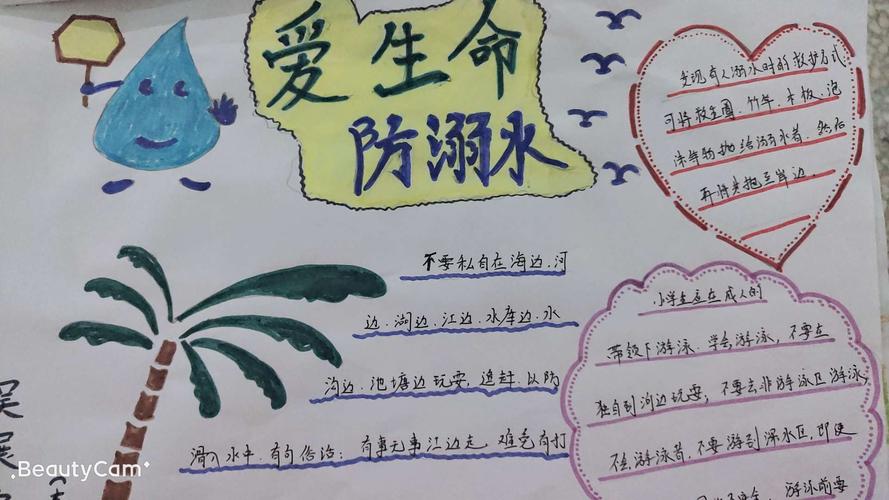 爱生命
防溺水
发现有人溺水时的救护方式:
可将救生圈、竹竿、木板、泡
沫等物抛给溺水者,然后
再将其拖至岸边。
不要私自在海边、河
边、湖边、江边、水库边、水
沟边、池塘边玩耍、追赶,以防
滑入水中。有句俗话:有事无事江边走,难免有打
小学生应在成人的
带领下游泳、学会游泳,不要在
独自到河边玩耍,不要去非游泳区游泳,
不会游泳者,不要游到深水区,即使
游泳前要
BeautyCam